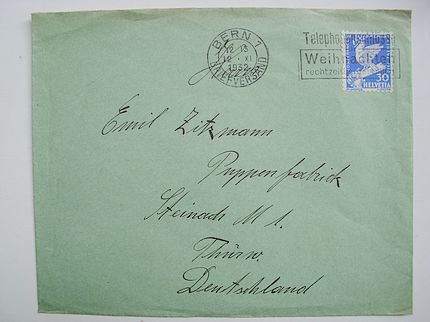 BERN 1
12-13
12·XI
1932
BRIEFVERSAND
Telephonanschlüsse
Weihnachten
rechtzeitig
30
HELVETIA
Emil Zitzmann
Puppenfabrick
Steinach M 1.
Thürw.
Deutschland